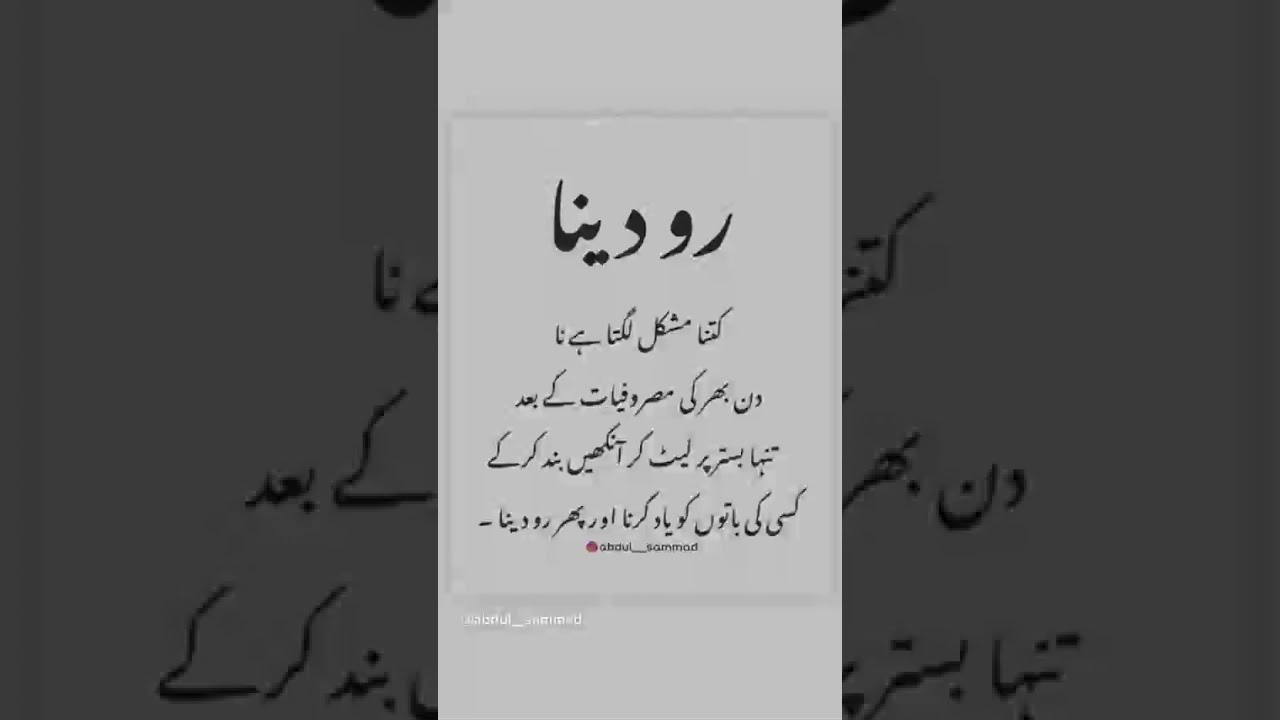 رو دینا
کتنا مشکل لگتا ہے نا
دن بھر کی مصروفیات کے بعد
تنہا بستر پر لیٹ کر آنکھیں بند کر کے
کسی کی باتوں کو یاد کرنا اور پھر رو دینا ۔
abdul__sammad
@abdul__sammad